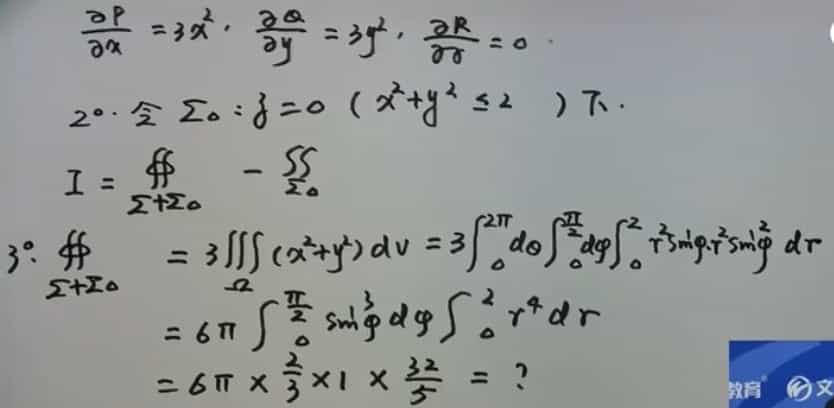 ∂P/∂x = 3x², ∂Q/∂y = 3y², ∂R/∂z = 0.
2°. 令 Σ₀ : z = 0 ( x²+y² ≤ 2 ) 下.
I = ∯_{Σ+Σ₀} - ∬_{Σ₀}
3°. ∯_{Σ+Σ₀} = 3∭_Ω (x²+y²) dv = 3∫₀^{2π} dθ ∫₀^{π/2} dφ ∫₀² r² sinφ · r² sin²φ dr
= 6π ∫₀^{π/2} sin³φ dφ ∫₀² r⁴ dr
= 6π × 2/3 × 1 × 32/5 = ?
教育 文